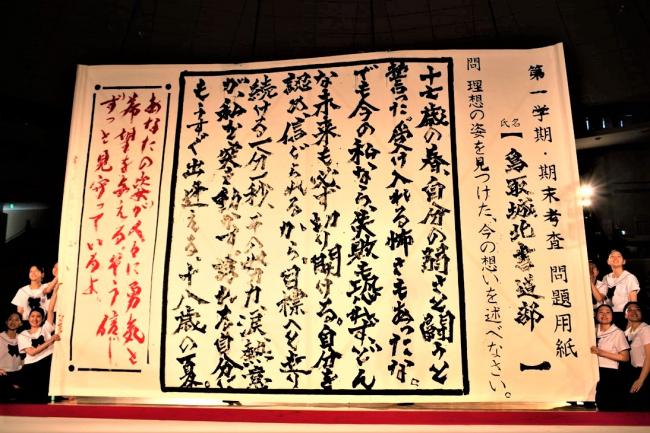 第一学期・期末考査 問題用紙
氏名【鳥取城北書道部】
問 理想の姿を見つけた、今の想いを述べなさい。
十七歳の春、自分の弱さと闘うと
誓った。受け入れる怖さもあったな。
でも今の私なら、失敗も恐れずどん
な未来も必ず切り開ける。自分を
認め、信じられるから。目標へと走り
続ける一分一秒、その努力、涙、熱意
が、私を突き動かす。憧れた自分に
もうすぐ出逢える、十八歳の夏。
あなたの姿が人々に勇気と
希望を与える。そう信じ
ずっと見守っているよ